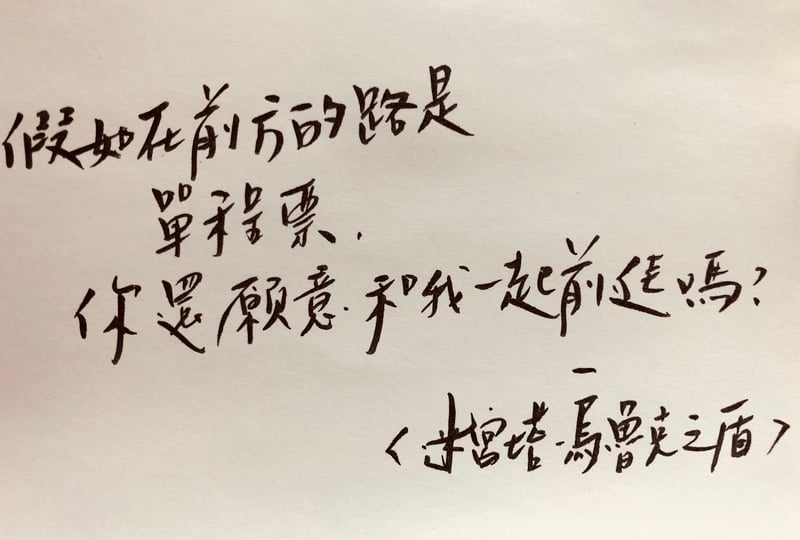 假如在前方的路是
單程票.
你還願意和我一起前進嗎?
—
〈迷宮塔.馬魯克之盾〉